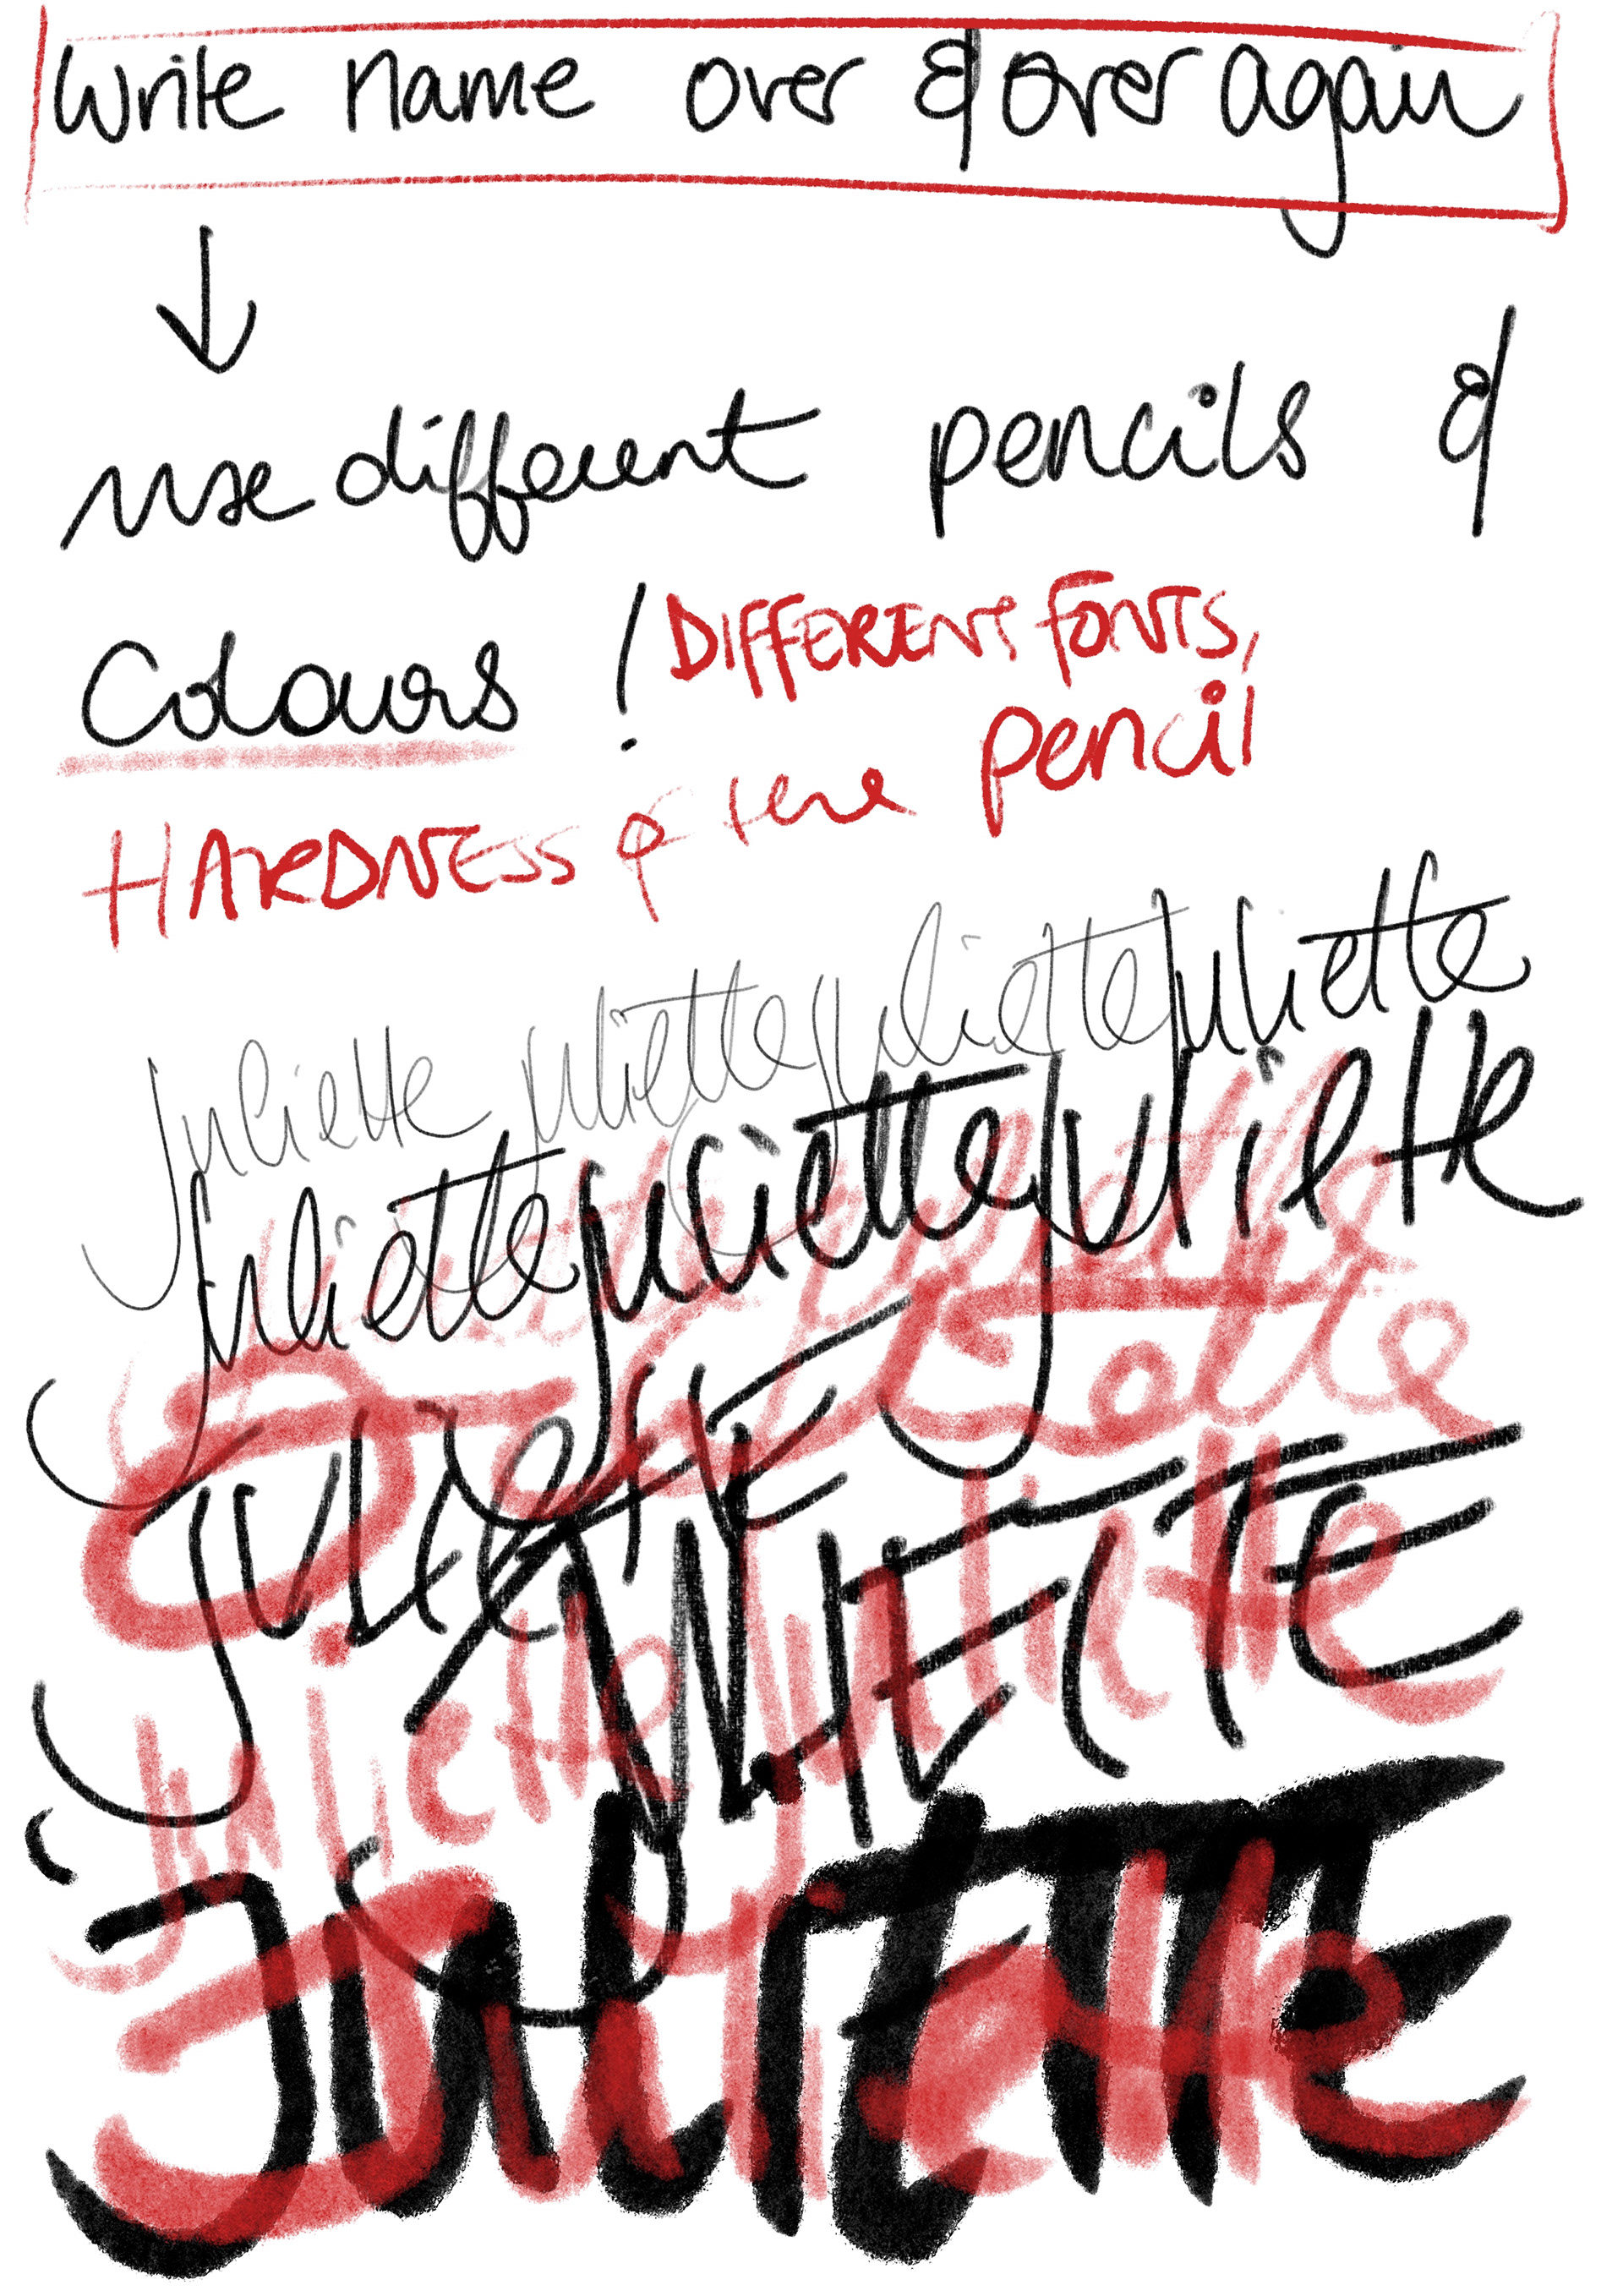 Write name over & over again
use different pencils &
Colours ! DIFFERENT FONTS,
HARDNESS of the pencil
Juliette juliette juliette juliette
juliette juliette juliette
Juliette
JULIETTE
JULIETTE
juliette juliette
JULIETTE
Juliette